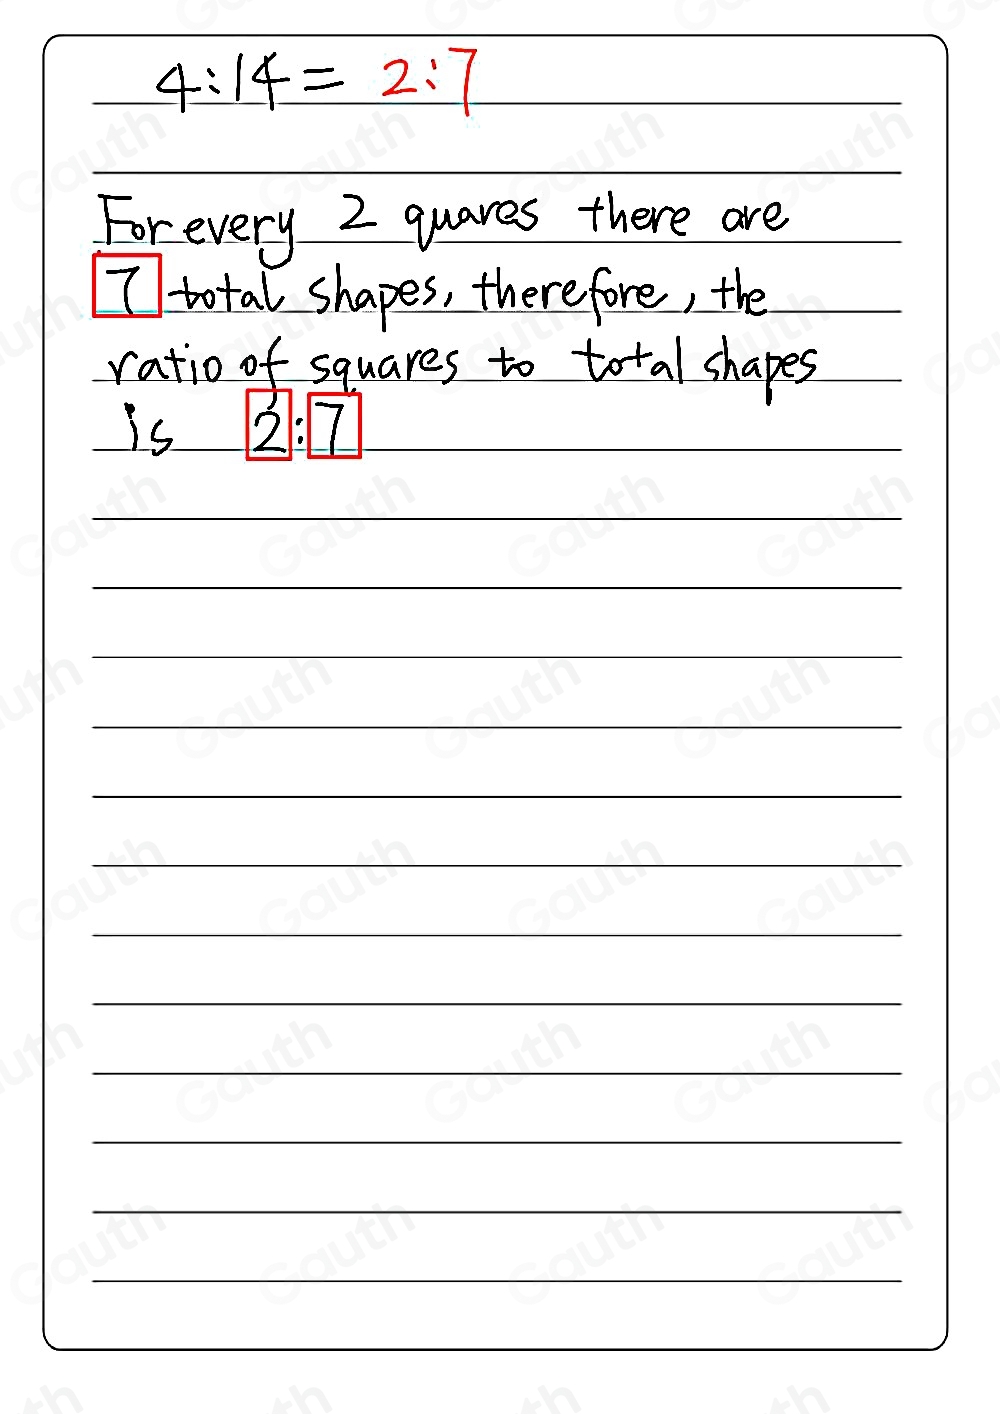 4:14= 2:7
For every 2 quares there are
7 total shapes, therefore, the
ratio of squares to total shapes
is 2:7
Gauth